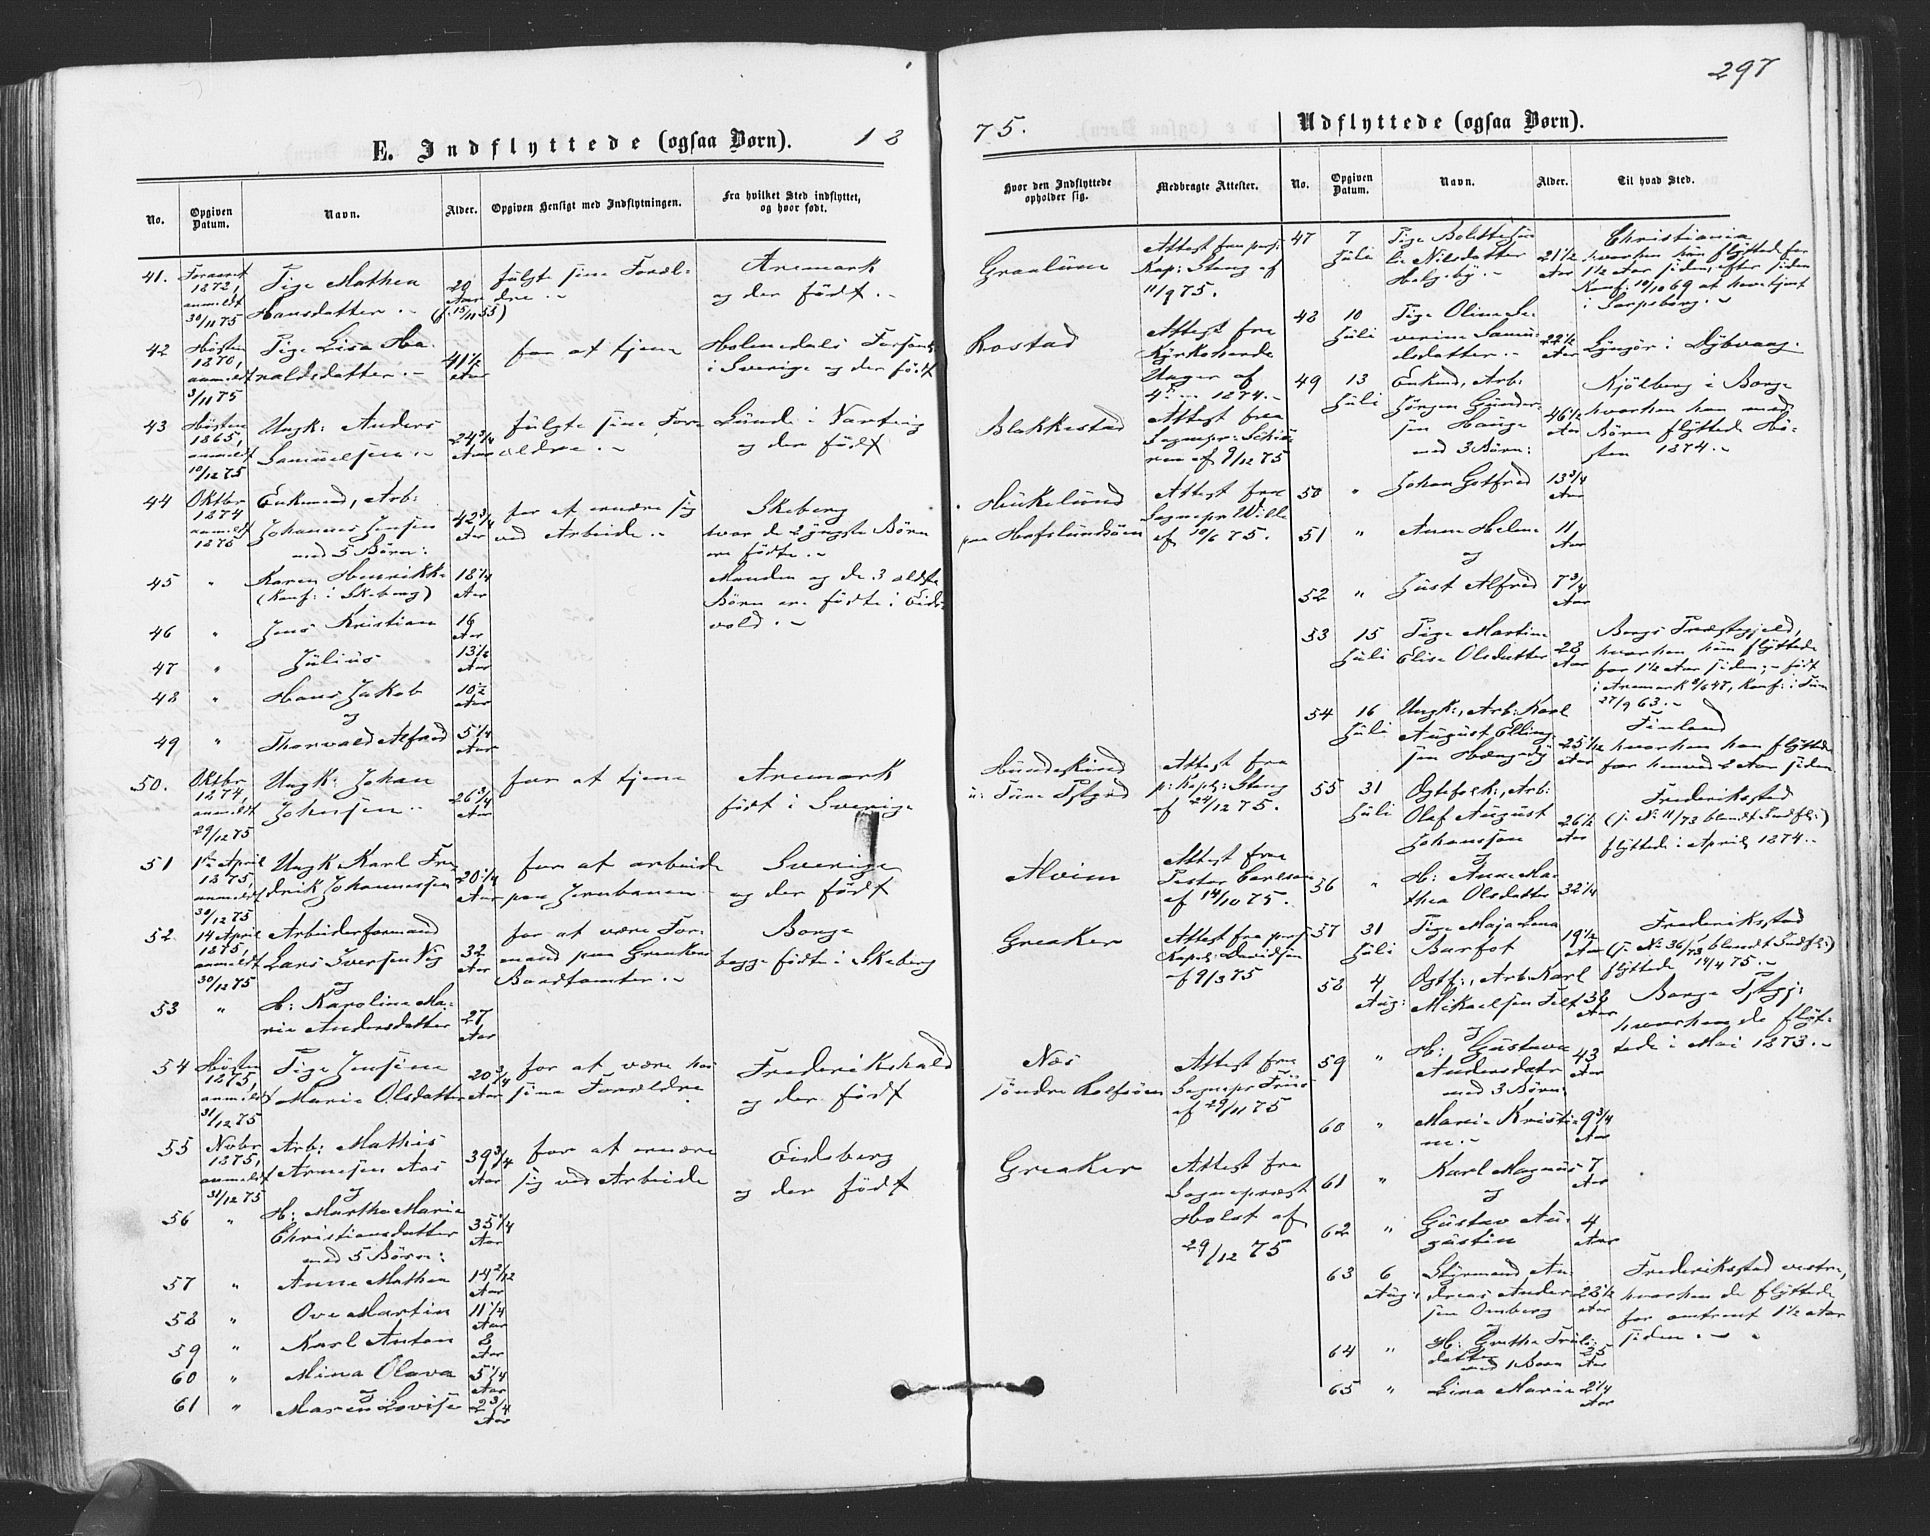 297
E. Indflyttede (ogsaa Børn). 18
75. Udflyttede (ogsaa Børn).
No. Opgiven Datum. Navn. Alder. Opgiven Hensigt med Indflytningen. Fra hvilket Sted indflyttet, og hvor født.
Hvor den Indflyttede opholder sig. Medbragte Attester. No. Opgiven Datum. Navn. Alder. Til hvad Sted.
41. Foraaret 1872, anmeldt 30/11 75
Pige Mathea
Hansdatter. -
20 Aar (f. 15/11 55)
fulgte sine Foræl-
dre. -
Aremark
og der født. -
Graalüm
Attest fra pers:
Kap: Stang af
11/9 75.
42 Høsten 1870, anmeldt 3/11 75
Pige Lisa Ha-
raldsdatter. -
41 1/2 Aar
for at tjene
Holmedals Forsaml:
i Sverige og der født
Rostad
Attest fra
Kyrkoherde
Unger af
1874. -
43 Høsten 1865, anmeldt 10/12 75
Ungk: Anders
Samuelsen. -
24 3/4 Aar
fulgte sine For-
ældre. -
Lünde i Varteig
og der født
Blakkestad
Attest fra
Sognepr: Schiø-
ren af 9/12 75
44 Oktbr 1874 anmeldt 1875
Enkemd, Arb:
Johannes Jensen
med 5 Børn:
42 3/4 Aar
for at ernære sig
ved Arbeide. -
Skeberg
hvor de 2 yngste Børn
ere fødte. -
Manden og de 3 ældste
Børn ere fødte i Eids-
vold. -
Hükelünd
paa Hafslundsöen
Attest fra
Sognepr Wille
af 10/6 75.
45 " Karen Henrikke
(Konf: i Skeberg)
18 1/4 Aar
46 " Jens Kristian 16 Aar
47 " Jülius 13 1/2 Aar
48 " Hans Jakob 10 1/2 Aar
og
49 " Thorvald Alfred 5 1/4 Aar
50. Oktbr 1874, anmeldt 29/12 75
Ungk: Johan
Johnsen. -
26 3/4 Aar
for at tjene
Aremark
født i Sverige
Hündskind
i Tüne Pstgjd
Attest fra
p: Kapl: Stang
af 24/12 75.
51 1ste April 1875, anmeldt 30/12 75
Ungk Karl Fre-
drik Johannessen
20 1/4 Aar
for at arbeide
paa Jernbanen
Sverige
og der født
Alvim
Attest fra
Pastor Carlson
af 14/10 75.
52. 14 April 1875, anmeldt 30/12 75
Arbeiderformand
Lars Iversen Vig
og
32 Aar
for at være For-
mand paa Greaker
Bordtomter. -
Borge
begge fødte i Skeberg
Greaker
Attest fra pers:
Kapl: Davidsen
af 9/3 75
53 " H: Karoline Ma-
rie Andersdatter
27 Aar
54 Høsten 1875, anmeldt 31/12 75
Pige Jensine
Marie Olsdatter
20 3/4 Aar
for at være hos
sine Forældre
Frederikshald
og der født
Næs
söndre Rolfsöen
Attest fra
Sognepr Friis
af 29/11 75
55 Nvbr 1875, anmeldt 31/12 75
Arb: Mathis
Arnesen Aas
og
39 3/4 Aar
for at ernære
sig ved Arbeide
Eidsberg
og der født
Greaker
Attest fra
Sognepræst
Holst af
29/12 75
56 " H: Martha Marie
Christiansdatter
med 5 Børn:
35 1/4 Aar
57 " Anne Mathea 14 2/12 Aar
58 " Ove Martin 11 1/4 Aar
59 " Karl Anton 8 Aar
60 " Mina Olava 5 1/4 Aar
og
61 " Maren Lovise 2 3/4 Aar
47 7 Jüli
Pige Bolette Jü-
lie Nilsdatter
Helgeby. -
21 1/2 Aar
Christiania
hvorhen hün flyttede for
1 1/2 Aar siden, efter siden
Konf: 10/10 69 at have tjent
i Sarpsborg. -
48 10 Jüli
Pige Oline Se-
verine Samu-
elsdatter. -
22 1/2 Aar
Lyngör i Dybvaag.
49 13 Jüli
Enkemd, Arb:
Jörgen Günder-
sen Haüge
med 3 Børn:
46 1/2 Aar
Kjölberg i Borge
hvorhen han med
Börn flyttede Hö-
sten 1874. -
50 " Johan Gotfred 13 3/4 Aar
51 " Anne Helene 11 Aar
og
52 " Just Alfred 7 3/4 Aar
53 15 Jüli
Pige Martine
Elise Olsdatter
28 Aar
Borge Præstegjeld,
hvorhen hün flyttede
for 1 1/2 Aar siden; - født
i Aremark 2/6 47, Konf: i Tüne
27/9 63. -
54 16 Jüli
Ungk:, Arb: Karl
August Elling-
sen Hængsby
25 1/12 Aar
Finland
hvorhen han flyttede
for henved 2 Aar siden
55 31 Jüli
Ogtefolk:, Arb:
Olaf August
Johanssen
og
26 1/2 Aar
Frederikstad
(f: No 11/73 blandt Indfl:)
flyttede i April 1874. -
56 " H: Anne Ma-
thea Olsdatter
32 1/4
57 31 Jüli
Pige Maja Lena
Barfot
19 1/2 Aar
Frederikstad
(f: No 36/73 blandt Indfl:)
flyttede 14/4 75. -
58 4 Aüg:
Ogtf:, Arb: Karl
Mikaelsen Felt
og
38 Aar
Borge Pstgj:
hvorhen de flyt-
tede i Mai 1873. -
59 " H: Güstava
Andersdatr
med 3 Börn:
43 Aar
60 " Marie Kristi-
ne. -
9 3/4 Aar
61 " Karl Magnus 7 Aar
og
62 " Güstav Au-
güstin
4 Aar
63 6 Aüg:
Styrmand An-
dreas Ander-
sen Omberg
og
28 1/2 Aar
Frederikstad vestre,
hvorhen de flyttede
for omtrent 1 1/2 Aar
siden. -
64 " H: Grethe
datter
med 1 Barn
25 Aar
65 " Lina Marie 2 1/4 Aar